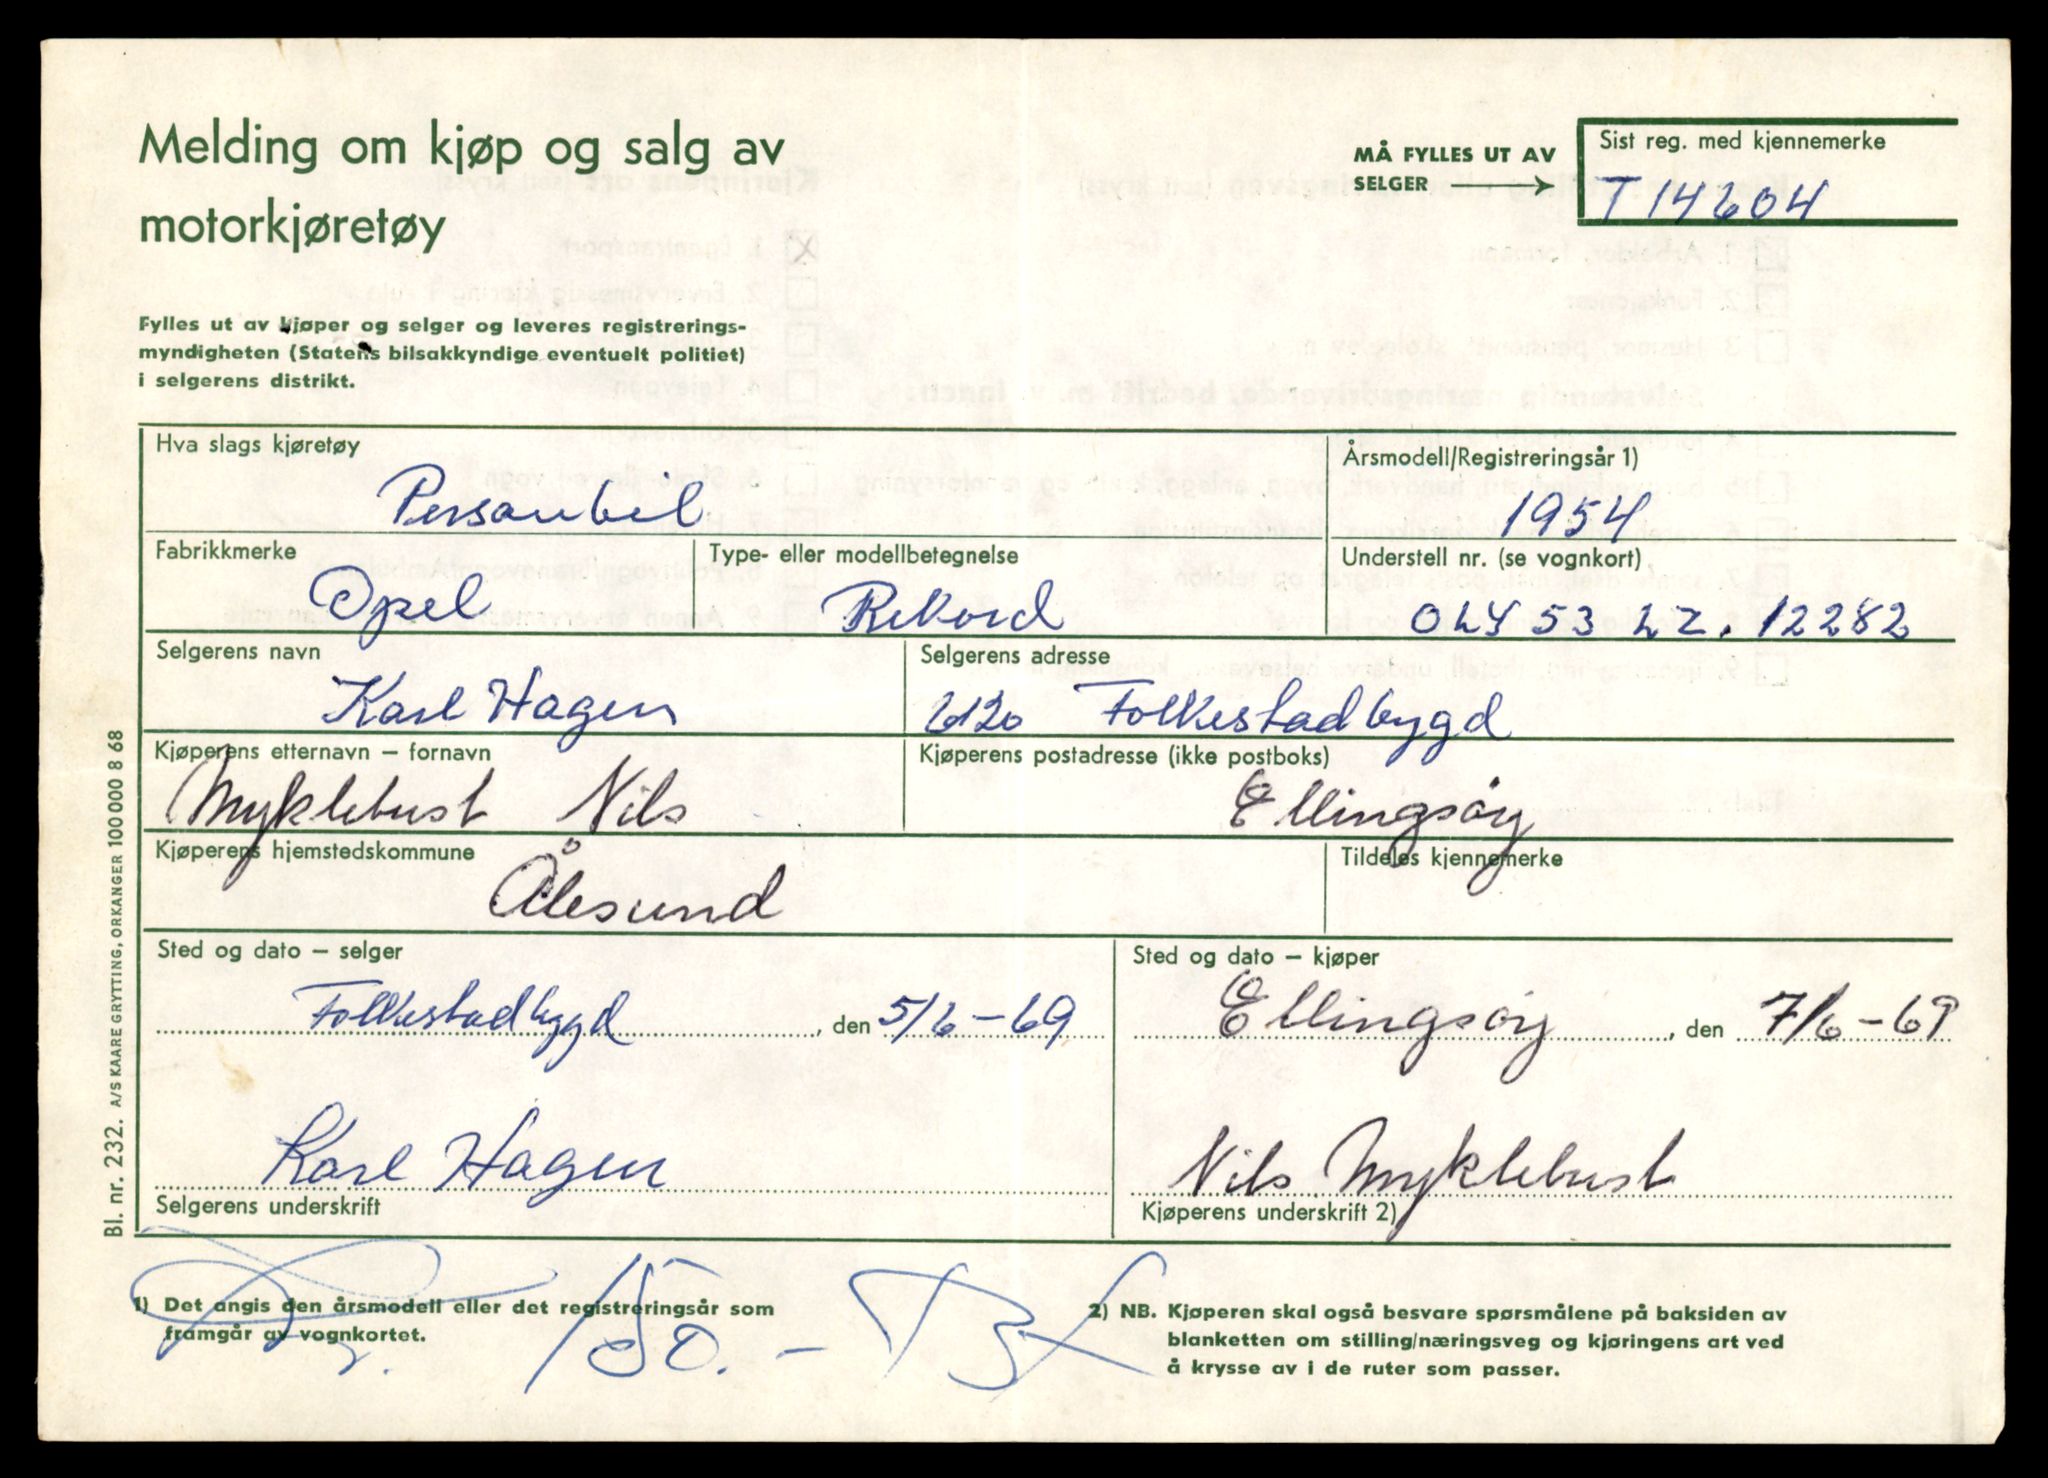 Melding om kjøp og salg av
motorkjøretøy
MÅ FYLLES UT AV
SELGER
Sist reg. med kjennemerke
T 14604
Fylles ut av kjøper og selger og leveres registrerings-
myndigheten (Statens bilsakkyndige eventuelt politiet)
i selgerens distrikt.
Hva slags kjøretøy
Personbil
Årsmodell/Registreringsår 1)
1954
Fabrikkmerke
Opel
Type- eller modellbetegnelse
Rekord
Understell nr. (se vognkort)
53 LZ. 12282
Selgerens navn
Karl Hagen
Selgerens adresse
6120 Folkestadbygd
Kjøperens etternavn – fornavn
Myklebust Nils
Kjøperens postadresse (ikke postboks)
Ellingsøy
Kjøperens hjemstedskommune
Ålesund
Tildeles kjennemerke
Sted og dato – selger
Folkestadbygd, den 5/6-69
Sted og dato – kjøper
Ellingsøy, den 7/6-69
Karl Hagen
Selgerens underskrift
Nils Myklebust
Kjøperens underskrift 2)
150.-
1) Det angis den årsmodell eller det registreringsår som
framgår av vognkortet.
2) NB. Kjøperen skal også besvare spørsmålene på baksiden av
blanketten om stilling/næringsveg og kjøringens art ved
å krysse av i de ruter som passer.
Bl. nr. 232. A/S KAARE GRYTTING, ORKANGER 100 000 8 68